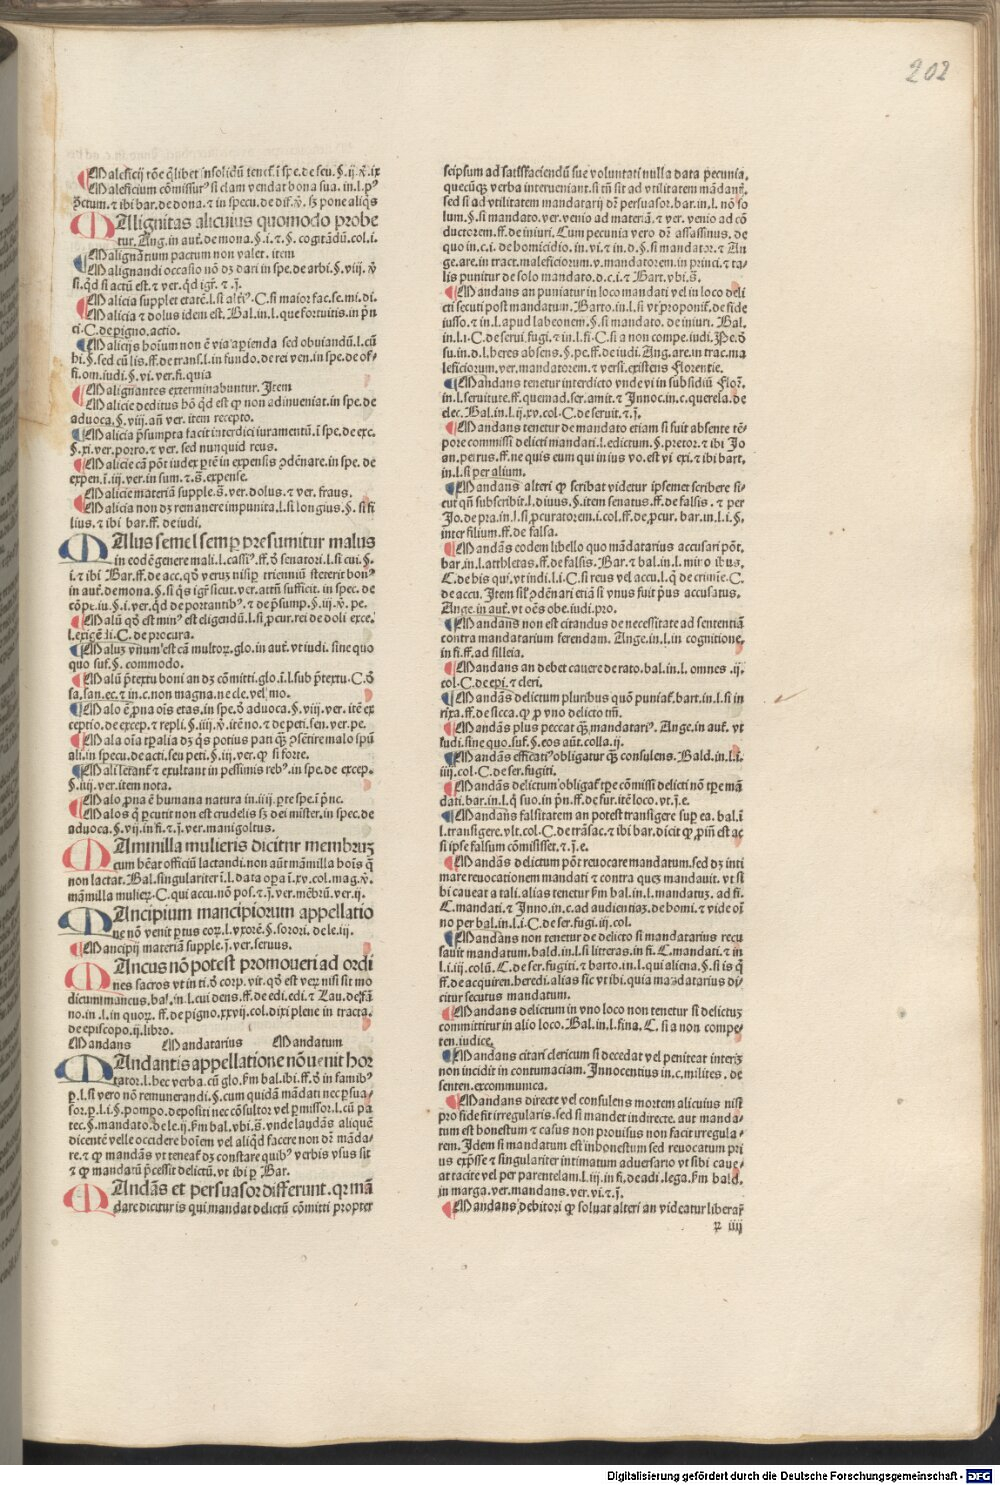 202
Maleficij rõe q̃libet insolidũ tenet̃ ĩ spe.de feu.§.ij.ꝟ.ix
Maleficium cõmissurꝰ si clam vendat bona sua.in.l.pꝰ
tur.Ang.in aut̃.de mona.§.i.⁊.§.cogitãdũ.col.i.
Malignitas alicuius quomodo probe
Malignantium pactum non valet.item
Malignandi occasio nõ dꝫ dari in spe.de arbi.§.viii.ꝟ
si.q̃d si actũ est.⁊ ver.q̃d igr̃.⁊.j̃.
Malicia supplet etatẽ.l.si alteriꝰ.C.si maior fac.se.mi.di.
Malicia ⁊ dolus idem est.Bal.in.l.que fortuitis.in pñ
ci.C.de pigno.actio.
Malicijs hoĩum non ẽ via apienda sed obuiandũ.l.cũ
hi.§.sed cũ lis.ff.de trans.l.in fundo.de rei ven.in spe.de of⸗
fi.om.iudi.§.vi.ver.fi.quia
Malignantes exterminabuntur.Item
Malicie deditus hõ q̃d est ꝙ non adinueniat.in spe.de
aduoca.§.viii.añ ver.item recepto.
Malicia p̃sumpta facit interdici iuramentũ.ĩ spe.de exc.
§.xi.ver.porro.⁊ ver.sed nunquid reus.
Malicie cã põt iudex ꝑtẽ in expensis ꝯdẽnare.in spe.de
expen.ĩ.iii.ver.in sum.⁊.s̃.expense.
Malicie materiã supple.s̃.ver.dolus.⁊ ver.fraus.
Malicia non dꝫ remanere impunita.l.si longius.§.si fi
lius.⁊ ibi bar.ff.de iudi.
Malus semel semꝑ presumitur malus
in eodẽ genere mali.l.cassiꝰ.ff.ð senatori.l.si cui.§.
i.⁊ ibi Bar.ff.de acc.qð verum nisi ꝑ triennũ steterit bonꝰ
in aut̃.de mona.§.si q̃s igr̃ sicut.ver.attñ sufficit.in spec.de
Malũ qð est minꝰ est eligendũ.l.si ꝓcur.rei de doli exce.
l.exigẽdi.C.de procura.
Maluꝫ vnum est cãm multoꝝ.glo.in aut̃.vt iudi.sine quo
quo suf.§.commodo.
Malũ p̃textu boni an dꝫ cõmitti.glo.ĩ.l.sub p̃textu.C.ð
sa.san.ec.⁊ in c.non magna.ne cle.vel mo.
Malo ẽ ꝓna oĩs etas.in spe.ð aduoca.§.viij.ver.itẽ ex
ceptio.de excep.⁊ repli.§.iiij.ꝟ.itẽ no.⁊ de peti.sen.ver.pe.
ali.in specu.de acti.seu peti.§.iij.ver.ꝙ si forte.
Mali letant̃ ⁊ exultant in pessimis rebꝰ.in spe.de excep.
§.iiij.ver.item nota.
Malo ꝓna ẽ humana natura in.iiij.ꝑte spe.ĩ p̃nc.
Malos q̃ ꝑcutit non est crudelis sꝫ dei mĩster.in spec.de
aduoca.§.vij.in fi.⁊.j̃.ver.manigoltus.
Mammilla mulieris dicitur membrum
cum hẽat officiũ lactandi.non aũt mãmilla hoĩs q̃
non lactat.Bal.singulariter ĩ.l.data oꝑa ĩ.xv.col.mag.ꝟ.
mãmilla mulieꝝ.C.qui accu.nõ pos.⁊.j̃.ver.mẽbrũ.ver.ij.
Mancipium mancipiorum appellatio
ne nõ venit ꝑtus eoꝝ.l.vxorẽ.§.sorori.de le.iij.
Mancipij materiã supple.j̃.ver.seruus.
Mancus nõ potest promoueri ad ordi
nes sacros vt in ti.ð corp.vit.qð est veꝝ nisi sit mo
dicum mancus.bal.in.l.cui dens.ff.de edi.edi.⁊ Lau.de fã
no.in.l.in quoꝝ.ff.de pigno.xxvij.col.dixi plene in tracta.
de episcopo.ij.libro.
Mandans Mandatarius Mandatum
Mandantis appellatione nõ uenit hor
tator.l.hec verba.cũ glo.fm bal.ibi.ff.ð in famibꝰ
ꝑ.l.si vero nõ remunerandi.§.cum quidã mãdati nec ꝑsua⸗
sor.ꝑ.l.i.§.pompo.depositi nec cõsultor vel ꝑmissor.l.cũ pa
tec.§.mandato.de le.ij.fm bal.vbi.s̃.vnde laudãs aliquẽ
dicentẽ velle occidere hoĩem vel aliq̃d facere non dr̃ mãda⸗
re.⁊ ꝙ mandãs vt teneat̃ dꝫ constare quibꝰ verbis vsus sit
⁊ ꝙ mandatũ p̃cessit delictũ.vt ibi ꝑ Bar.
Mandãs et persuasor differunt.qꝛ mã
dare dicitur is qui mandat delictũ cõmitti propter
seipsum ad satisfaciendũ sue voluntati nulla data pecunia.
quecũqꝫ verba interueniant.si tñ sit ad vtilitatem mãdant̃.
sed si ad vtilitatem mandatarij dr̃ persuasor.bar.in.l.nõ so
lum.§.si mandato.ver.venio ad materiã.⁊ ver.venio ad cõ
ductorem.ff.de iniuri.Cum pecunia vero dr̃ assassinus.de
quo in.c.i.de homicidio.in.vi.⁊ in.ð.§.si mandator.⁊ An
ge.are.in tract.maleficiorum.v.mandatorem.in princi.⁊ ta⸗
lis punitur de solo mandato.d.c.i.⁊ Bart.vbi.s̃.
Mandans an puniatur in loco mandati vel in loco deli
cti secuti post mandatum.Barto.in.l.si vt proponit̃.de fide
iusso.⁊ in.l.apud labeonem.§.si mandato.de iniuri.Bal.
in.l.i.C.de serui.fugi.⁊ in.l.fi.C.si a non compe.iudi.Pe.ð
su.in.d.l.heres absens.§.pe.ff.de iudi.Ang.are.in trac.ma
leficiorum.ver.mandatorem.⁊ versi.existens Florentie.
Mandans tenetur interdicto vnde vi in subsidiũ Flor̃.
in.l.seruitute.ff.quemad.ser.amit.⁊ Innoc.in.c.querela.de
elec.Bal.in.l.ij.xv.col.C.de seruit.⁊.j̃.
Mandans tenetur de mandato etiam si fuit absente tẽ⸗
pore commissi delicti mandati.l.edictum.§.pretor.⁊ ibi Jo
an.petrus.ff.ne quis eum qui in ius vo.est vi exi.⁊ ibi bart.
in.l.si per alium.
Mandans alteri ꝙ scribat videtur ipsemet scribere si⸗
cut qñ subscribit.l.diuus.§.item senatus.ff.de falsis.⁊ per
Jo.de pra.in.l.si ꝓcuratorem.i.col.ff.de ꝓcur.bar.in.l.i.§.
inter filium.ff.de falsa.
Mandãs eodem libello quo mãdatarius accusari põt.
bar.in.l.athletas.ff.de falsis.Bar.⁊ bal.in.l.minoribus.
C.de his qui.vt indi.l.i.C.si reus vel accu.l.q̃ de crimie.C.
de accu.Item sil̃r ꝯdẽnari etiã si vnus fuit p̃us accusatus.
Ange.in aut̃.vt oẽs obe.iudi.pro.
Mandans non est citandus de necessitate ad sententiã
contra mandatarium ferendam.Ange.in.l.in cognitione.
in fi.ff.ad silleia.
Mandans an debet cauere de rato.bal.in.l.omnes.ij.
col.C.de epi.⁊ cleri.
Mandãs delictum pluribus quõ puniat̃.bart.in.l.si in
rixa.ff.de sicca.ꝙ ꝓ vno delicto tm̃.
Mandãs plus peccat qꝫ mandatariꝰ.Ange.in aut̃.vt
iudi.sine quo.suf.§.eos aũt.colla.ij.
Mandãs efficatiꝰ obligatur qꝫ consulens.Bald.in.l.i.
iiij.col.C.de ser.fugiti.
Mandãs delictum obligat̃ tꝑe cõmissi delicti nõ tꝑe mã
dati.bar.in.l.q̃ suo.in pñ.ff.de fur.itẽ loco.vt.j̃.e.
Mandans falsitatem an potest transigere suꝑ ea.bal.ĩ
l.transigere.vlt.col.C.de trãsac.⁊ ibi bar.dicit ꝙ ꝓim̃ est ac
si ipse falsum cõmisisset.⁊.j̃.e.
Mandãs delictum põt reuocare mandatum.sed dꝫ inti
mare reuocationem mandati ⁊ contra quem mandauit.vt si
bi caueat a tali.alias tenetur fm bal.in.l.mandatum.ad fi.
C.mandati.⁊ Inno.in.c.ad audientiam.de homi.⁊ vide oĩ
no per bal.in.l.i.C.de ser.fugi.iij.col.
Mandans non tenetur de delicto si mandatarius recu
sauit mandatum.bald.in.l.si litteras.in fi.C.mandati.⁊ in
l.i.iij.colũ.C.de ser.fugiti.⁊ barto.in.l.qui aliena.§.si is q̃
ff.de acquiren.heredi.alias sic vt ibi.quia mandatarius di
citur secutus mandatum.
Mandans delictum in vno loco non tenetur si delictum
committitur in alio loco.Bal.in.l.fina.C.si a non compe⸗
ten.iudice.
Mandans citari clericum si decedat vel peniteat interim
non incidit in contumaciam.Innocentius in.c.milites.de
senten.excommunica.
Mandans directe vel consulens mortem alicuius nisi
pro fide fit irregularis.sed si mandet indirecte.aut manda⸗
tum est honestum ⁊ casus non prouisus non facit irregula⸗
rem.Idem si mandatum est inhonestum sed reuocatum pri
us exp̃sse ⁊ singulariter intimatum aduersario vt sibi caue⸗
at tacite vel per parentelam.l.iij.in fi.de adi.lega.fm bald.
in marga.ver.mandans.ver.vi.⁊.j̃.
Mandans debitori ꝙ soluat alteri an videatur liberar̃
ꝝ iiij
Digitalisierung gefördert durch die Deutsche Forschungsgemeinschaft - DFG